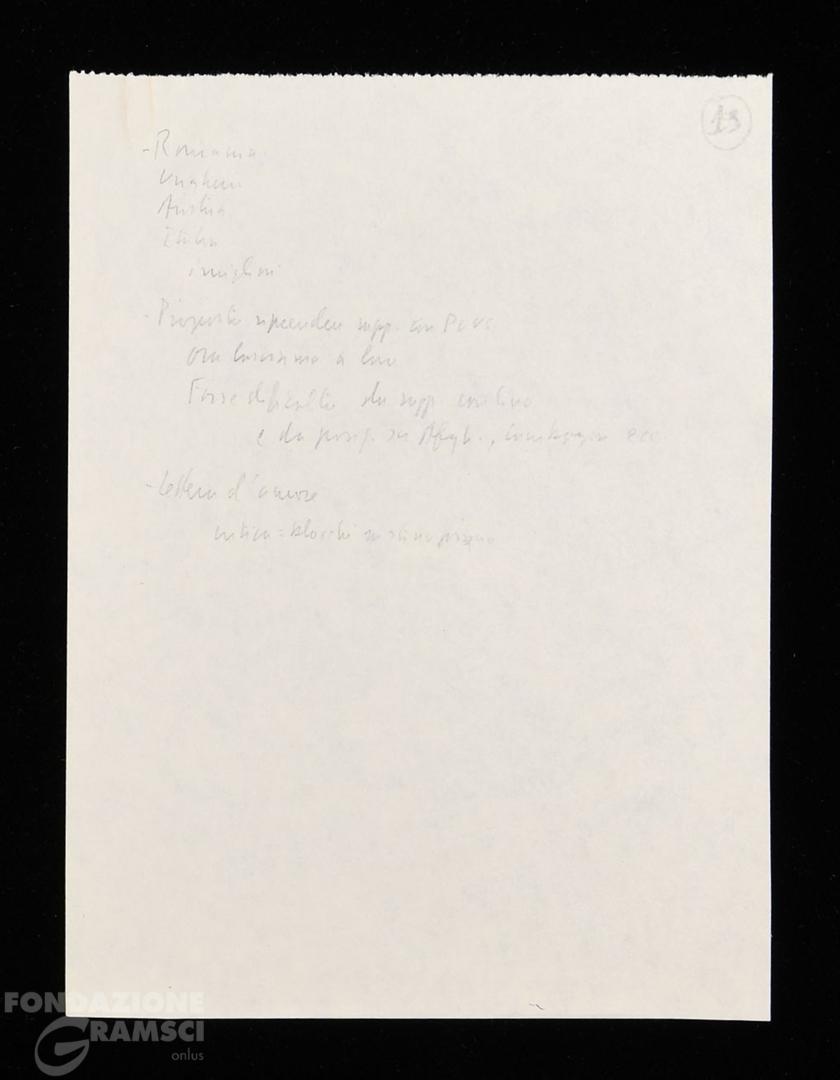 13
- Romania
Ungheria
Austria
Italia
i migliori
- Proposta riprendere rapp. con PCUS
ora a loro
Forse difficoltà da rapp. con Cina
e da posiz. su Afgh., Cambogia ecc
- Lettera d'amore
critica = blocchi
FONDAZIONE
GRAMSCI
onlus